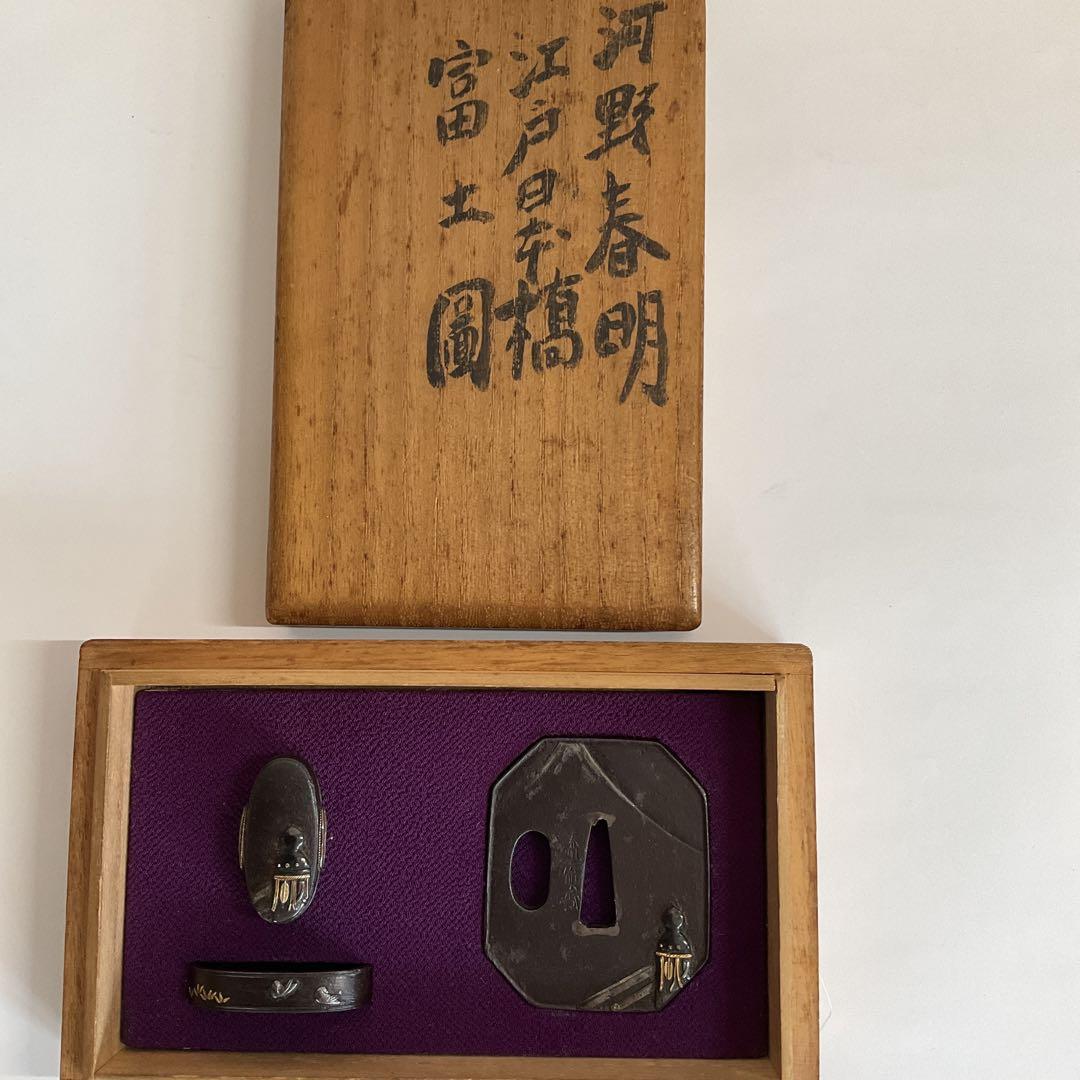 河野春明
江戸日本橋
富士圖